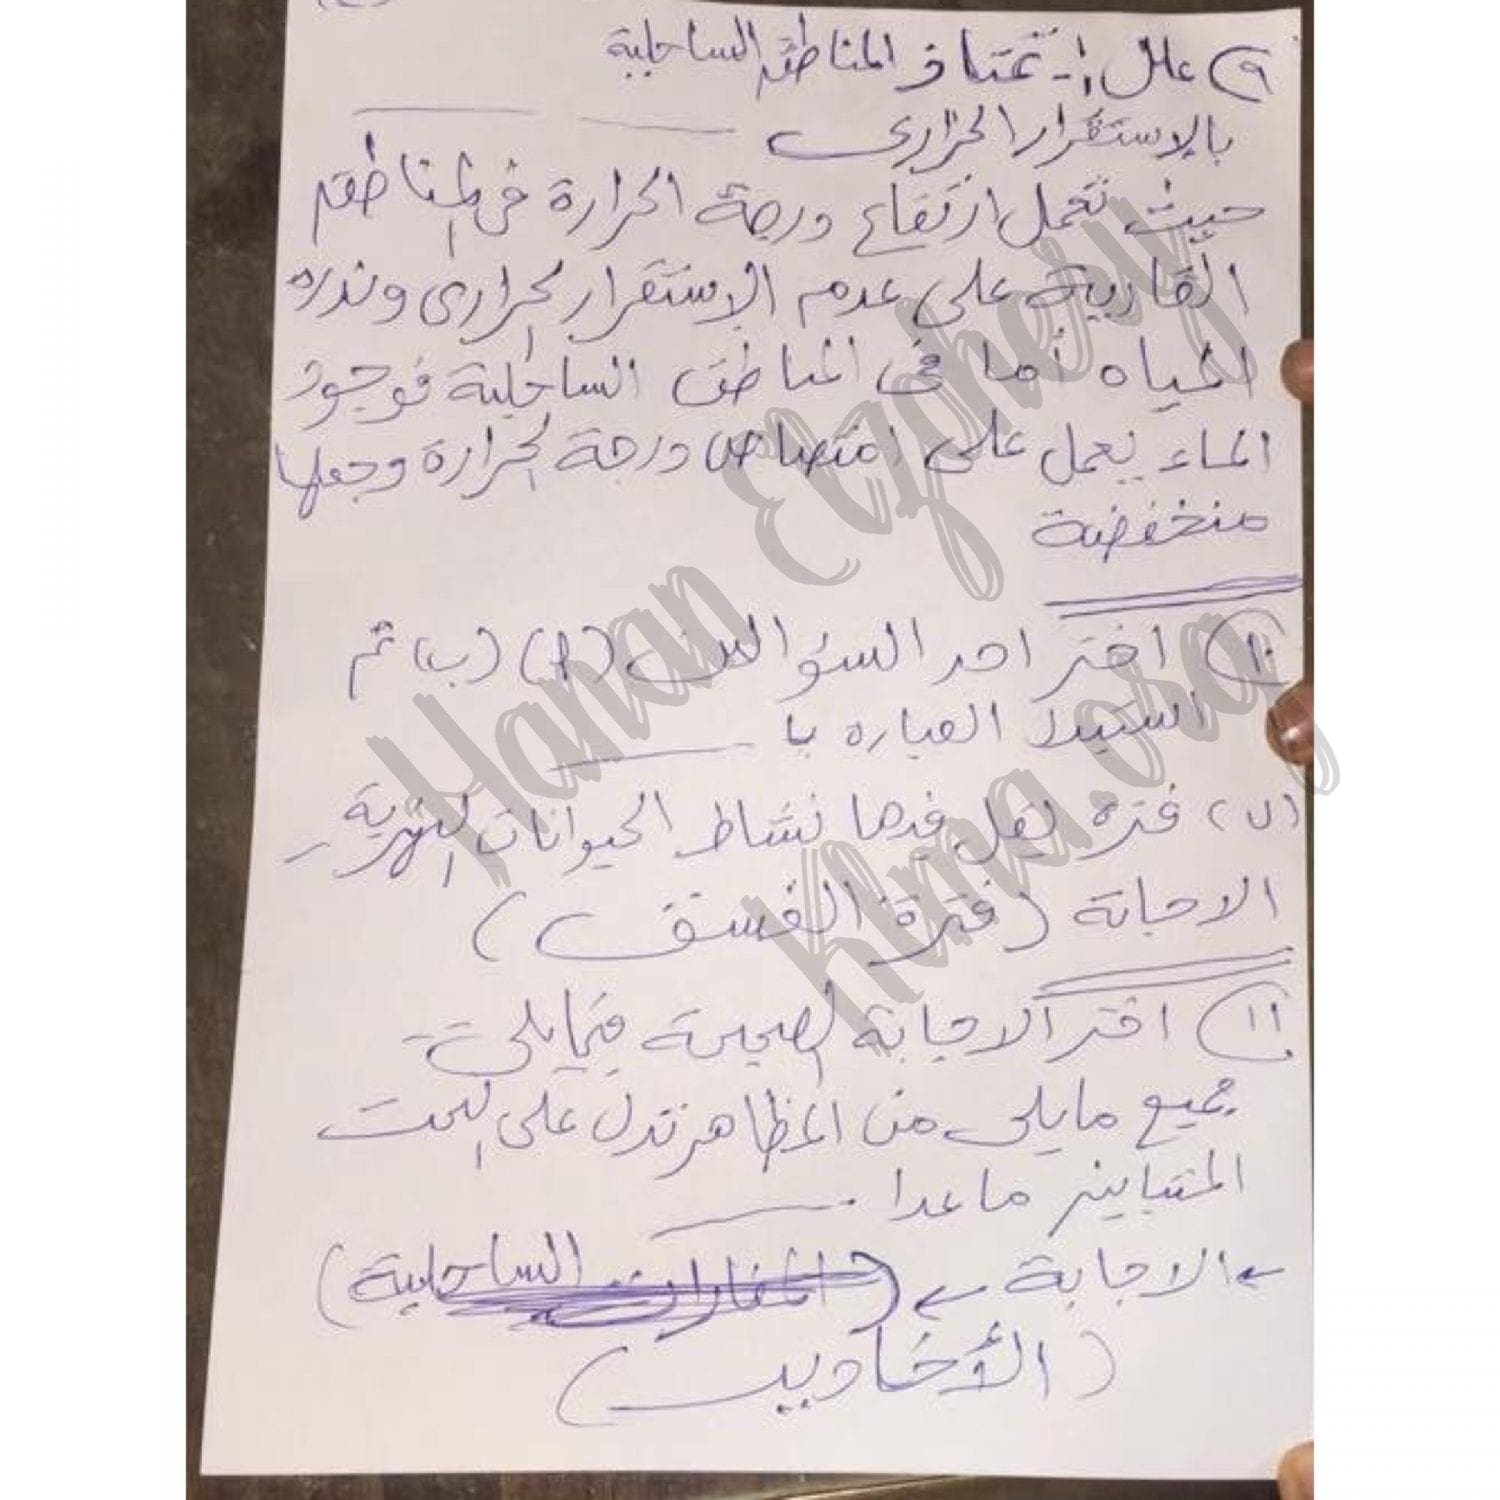 ٩) علل :- تمتاز المناطق الساحلية
بالاستقرار الحرارى
حيث تعمل ارتفاع درجة الحرارة فى المناطق
القارية على عدم الاستقرار الحرارى وندره
المياه أما فى المناطق الساحلية فوجود
الماء يعمل على امتصاص درجة الحرارة وجعلها
منخفضة
١٠) اختر احد السؤالين (أ) (ب) ثم
استبدل العباره با
(ب) فتره يقل فيها نشاط الحيوانات البحرية
الاجابة (فترة الغسق)
١١) اختر الاجابة الصحيحة فيما يلى :-
جميع مايلى من المظاهر تدل على النحت
المتباين ماعدا
← الاجابة ← (المغارات الساحلية)
(الأخاديد)
Hanan Elzphery
Klma.org